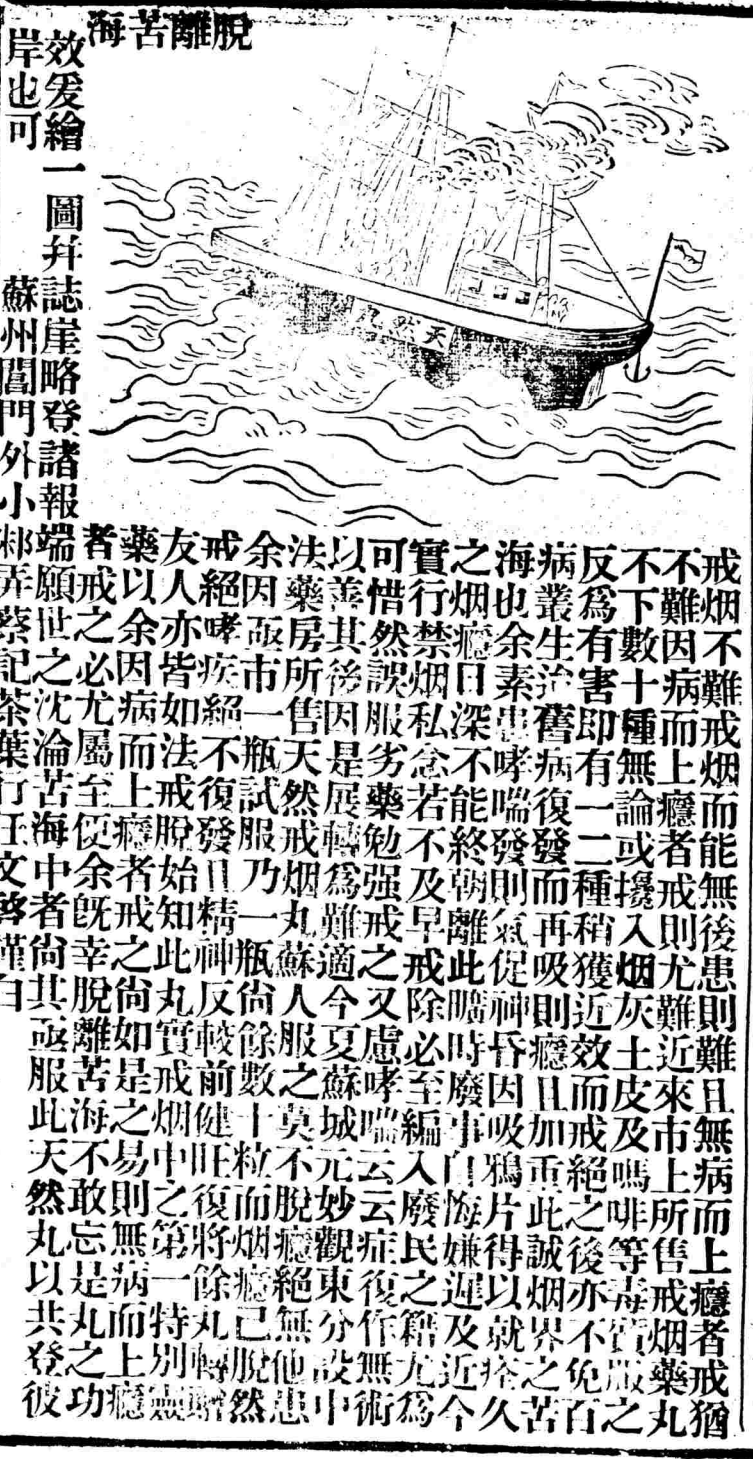 脫離苦海
天然丸
戒烟不難戒烟而能無後患則難且無病而上癮者戒猶
不難因病而上癮者戒則尤難近來市上所售戒烟藥丸
不下數十種無論或攙入烟灰土皮及嗎啡等毒質服之
反爲有害即有一二種稍獲近效而戒絕之後亦不免百
病叢生治舊病復發而再吸則癮且加重此誠烟界之苦
海也余素患哮喘發則氣促神昏因吸鴉片得以就痊久
之烟癮日深不能終朝離此曠時廢事自悔嫌遲及近今
實行禁烟私念若不及早戒除必至編入廢民之籍尤爲
可惜然誤服劣藥勉强戒之又慮哮喘云云症復作無術
以善其後因是展轉爲難適今夏蘇城元妙觀東分設中
法藥房所售天然戒烟丸蘇人服之莫不脫癮絕無他患
余因亟市一瓶試服乃一瓶尙餘數十粒而烟癮已脫然
戒絕哮疾絕不復發且精神反較前健旺復將餘丸轉贈
友人亦皆如法戒脫始知此丸實戒烟中之第一特別靈
藥以余因病而上癮者戒之尙如是之易則無病而上癮
者戒之必尤屬至便余旣幸脫離苦海不敢忘是丸之功
效爰繪一圖幷誌崖略登諸報端願世之沈淪苦海中者尙其亟服此天然丸以共登彼
岸也可　蘇州閶門外小邾弄蔡記茶葉行汪文啓謹白